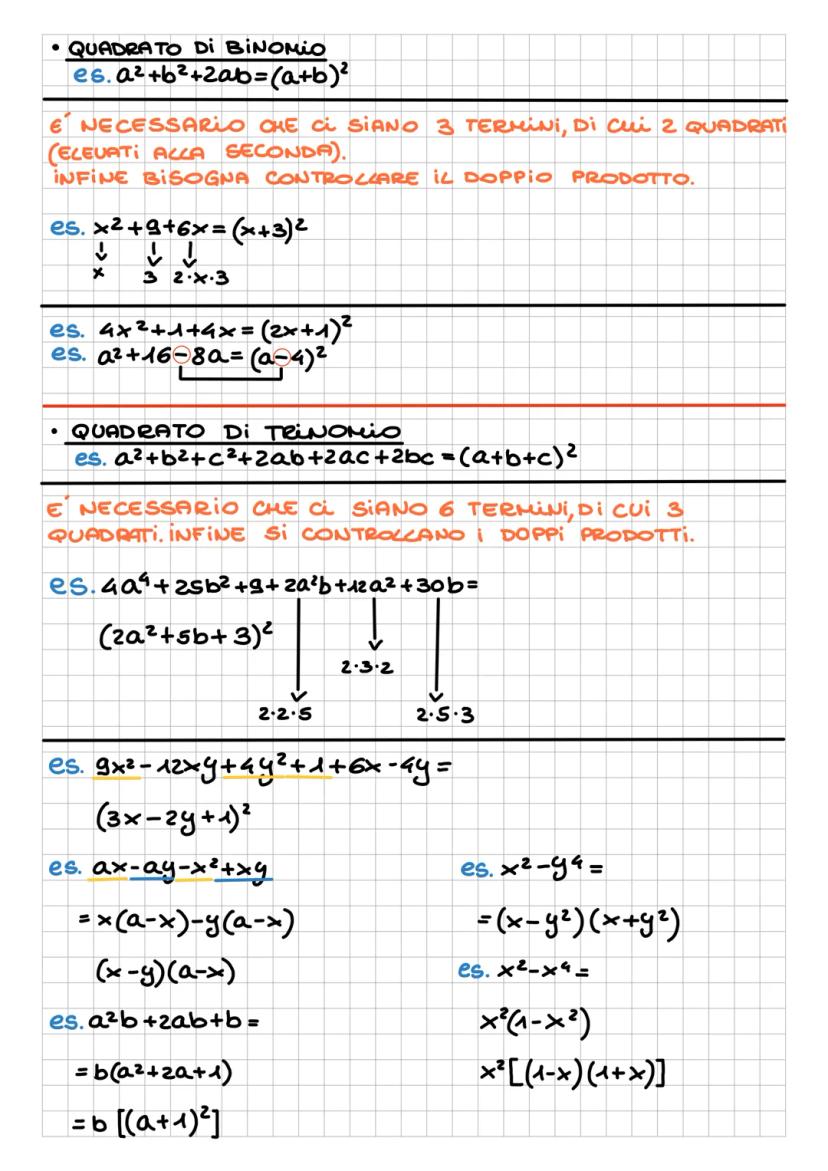 • QUADRATO Di BiNOMiO
es. a²+b²+2ab=(a+b)²
E' NECESSARiO CHE Ci SiANO 3 TERMiNi, Di CUi 2 QUADRATi
(ELEVATi ALLA SECONDA).
iNFiNE BiSOGNA CONTROLLARE iL DOPPiO PRODOTTO.
es. x²+9+6x=(x+3)²
x 3 2·x·3
es. 4x²+1+4x=(2x+1)²
es. a²+16-8a=(a-4)²
• QUADRATO Di TRiNOMiO
es. a²+b²+c²+2ab+2ac+2bc=(a+b+c)²
E' NECESSARiO CHE Ci SiANO 6 TERMiNi, Di CUi 3
QUADRATi. iNFiNE Si CONTROLLANO i DOPPi PRODOTTi.
es. 4a⁴+25b²+9+2a²b+12a²+30b=
(2a²+5b+3)²
2·3·2
2·2·5 2·5·3
es. 9x²-12xy+4y²+1+6x-4y=
(3x-2y+1)²
es. ax-ay-x²+xy
=x(a-x)-y(a-x)
(x-y)(a-x)
es. a²b+2ab+b=
=b(a²+2a+1)
=b[(a+1)²]
es. x²-y⁴=
=(x-y²)(x+y²)
es. x²-x⁴=
x²(1-x²)
x²[(1-x)(1+x)]